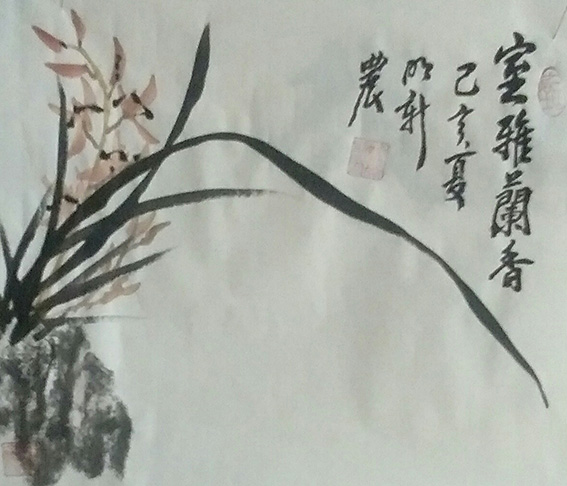 室雅蘭香
己亥夏
明軒
農